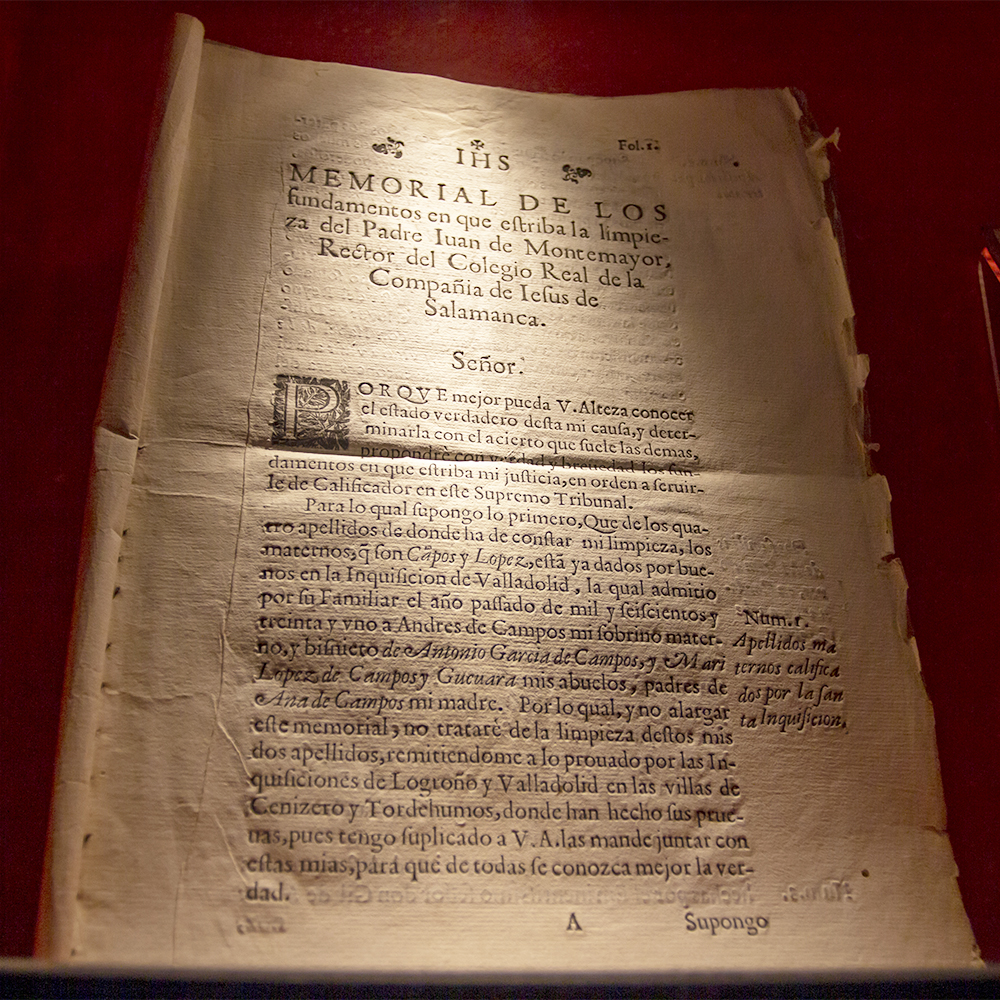 Fol. 1.
IHS
MEMORIAL DE LOS
fundamentos en que eſtriba la limpie-
za del Padre Iuan de Montemayor,
Rector del Colegio Real de la
Compañia de Ieſus de
Salamanca.
Señor.
PORQVE mejor pueda V. Alteza conocer
el eſtado verdadero deſta mi cauſa, y deter-
minarla con el acierto que ſuele las demas,
propondrè con verdad y breuedad los fun-
damentos en que eſtriba mi juſticia, en orden a ſeruir-
le de Calificador en eſte Supremo Tribunal.
Para lo qual ſupongo lo primero, Que de los qua-
tro apellidos de donde ha de conſtar mi limpieza, los
maternos, q̃ ſon Cãpos y Lopez, eſtã ya dados por bue-
nos en la Inquiſicion de Valladolid, la qual admitio
por ſu Familiar el año paſſado de mil y ſeiſcientos y
treinta y vno a Andres de Campos mi ſobrino mater-
no, y biſnieto de Antonio Garcia de Campos, y Mari
Lopez de Campos y Gueuara mis abuelos, padres de
Ana de Campos mi madre. Por lo qual, y no alargar
eſte memorial, no tratarè de la limpieza deſtos mis
dos apellidos, remitiendome a lo prouado por las In-
quiſiciones de Logroño y Valladolid en las villas de
Cenizero y Tordehumos, donde han hecho ſus prue-
uas, pues tengo ſuplicado a V. A. las mande juntar con
eſtas mias, para que de todas ſe conozca mejor la ver-
dad.
Num. 1.
Apellidos ma
ternos califica
dos por la ſan
ta Inquiſicion.
A Supongo